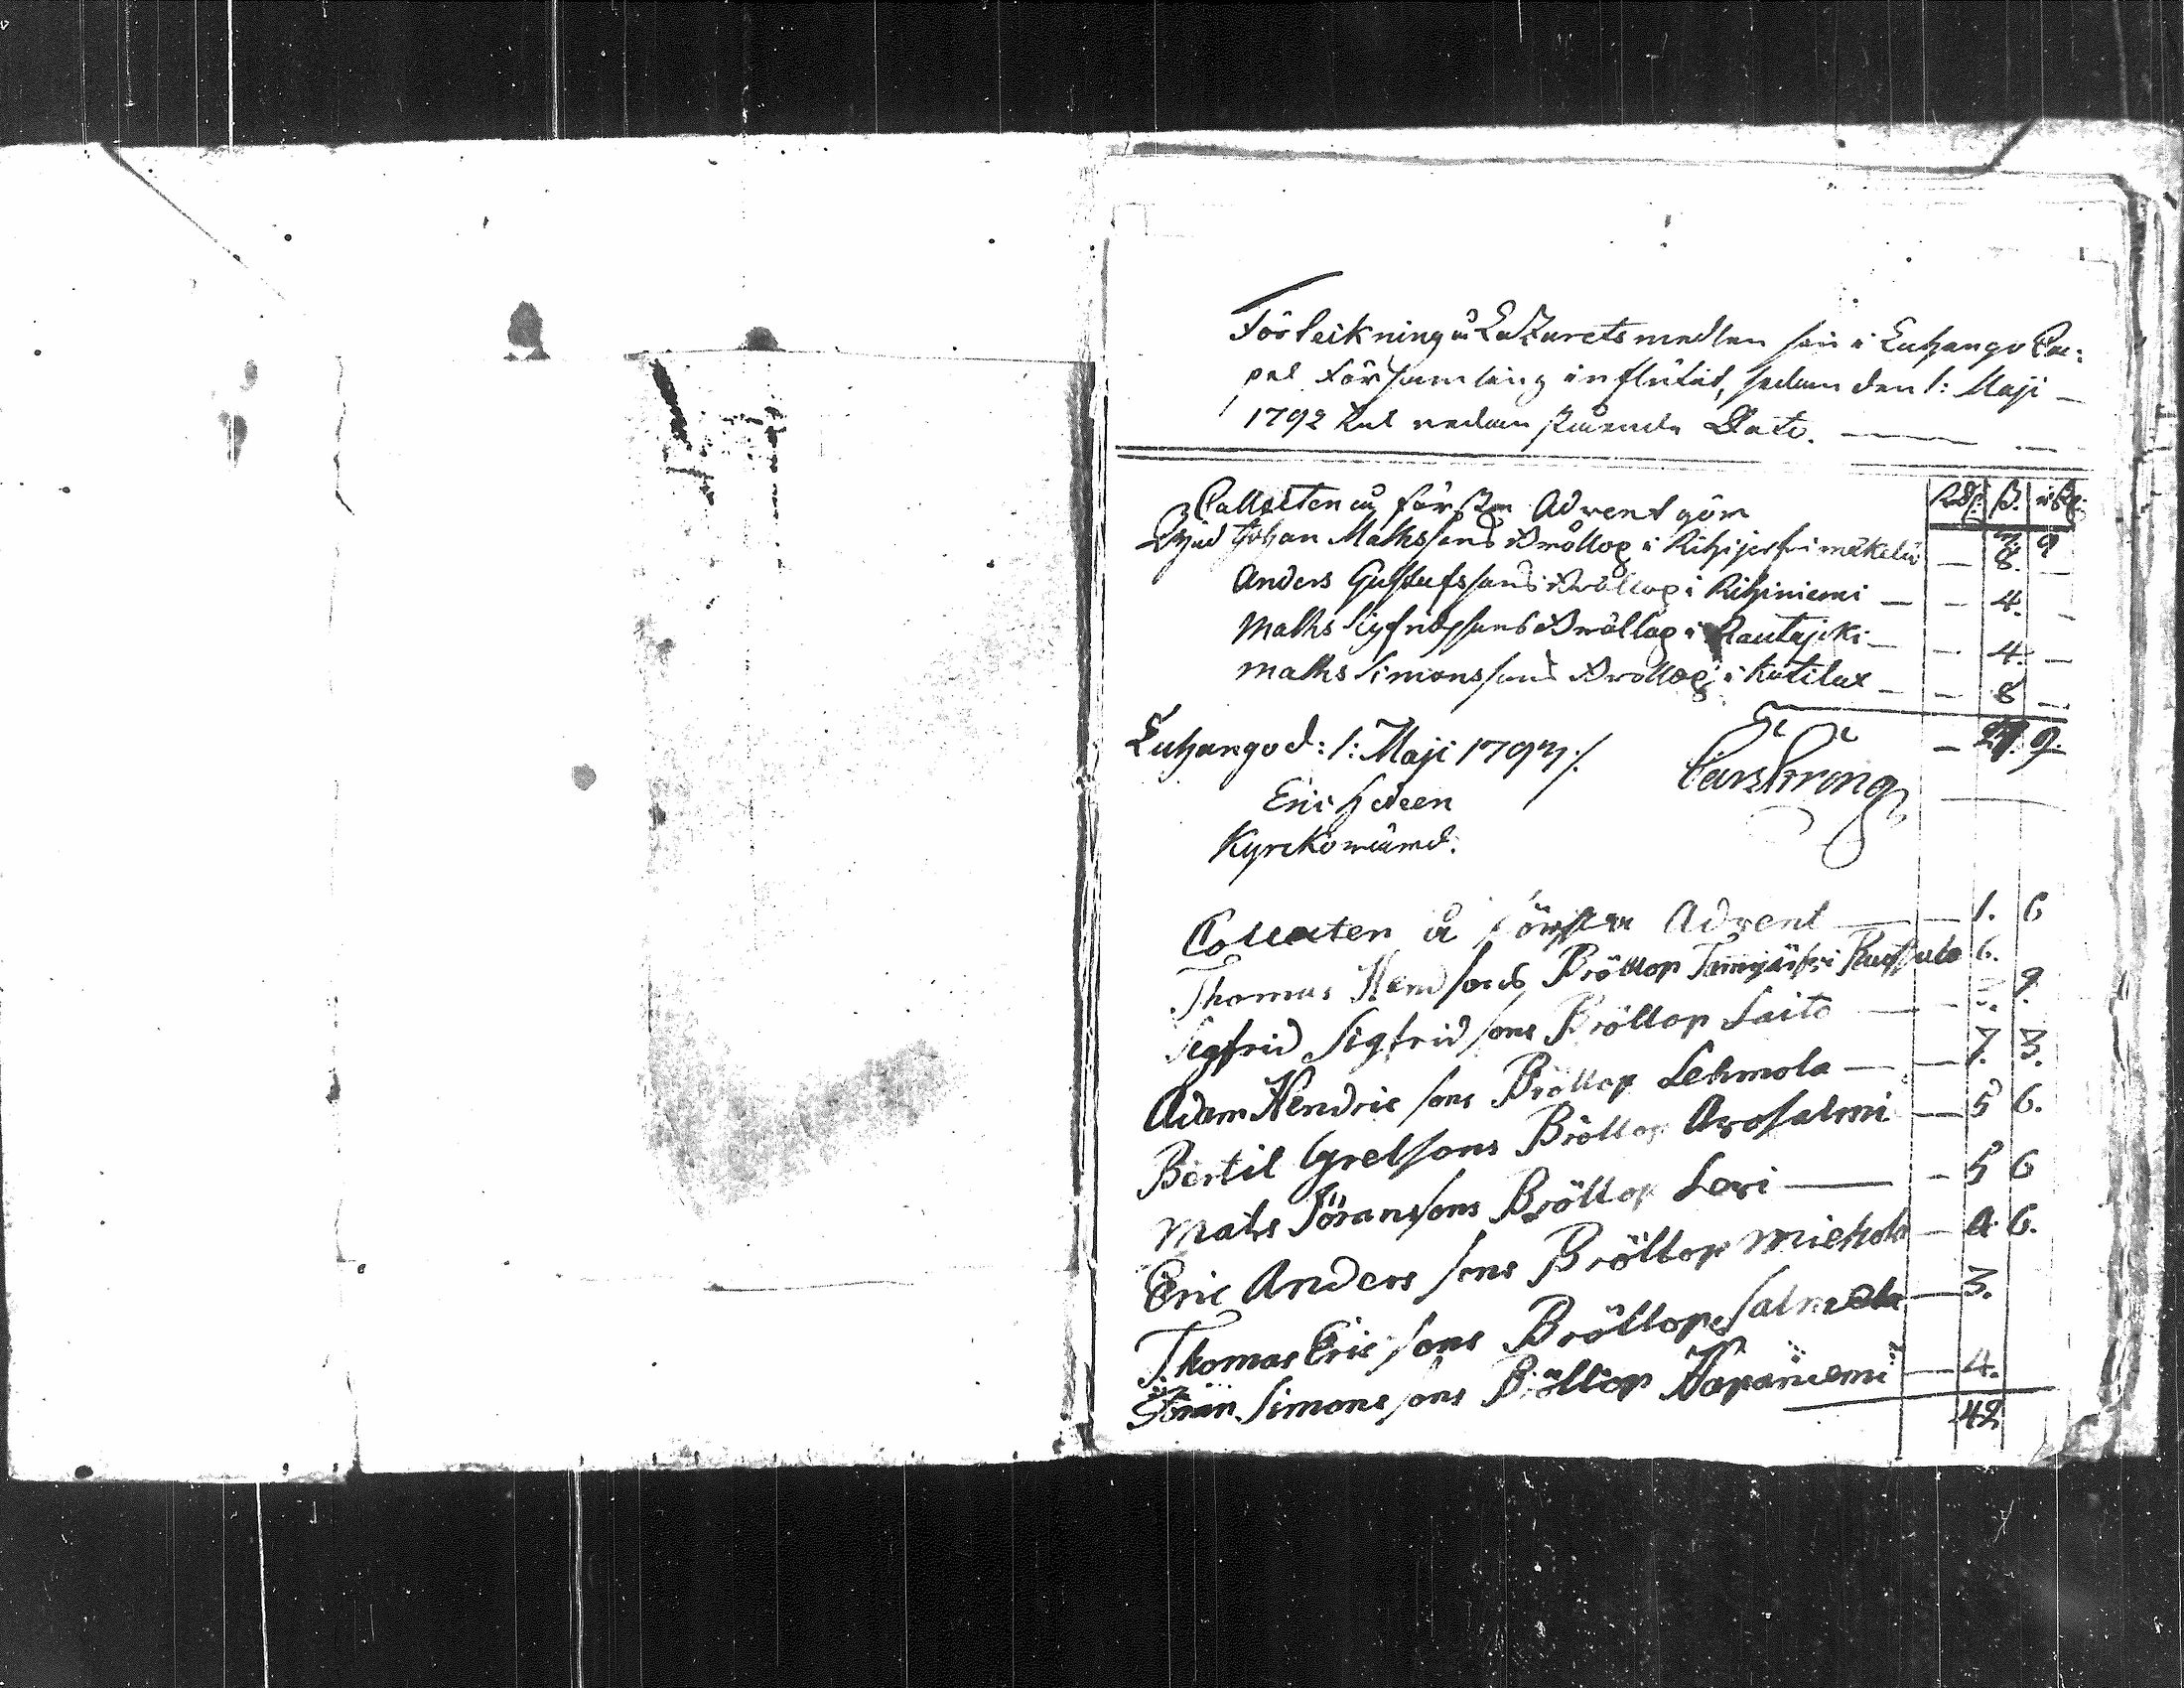 Förteikning å Lazaretsmedlen som i Luhango Ca:
pel Församling influtit, sedan den 1: Maji
1792 till nedanstående Dato.
Rdr. ß. rst.
Collecten på första Advent gör 3. 9
Wid Johan Mathssons Bröllop i Rihijerfvi mäkelä — 8. —
Anders Gustafssons Bröllop i Rihiniemi — 4. —
Maths Sigfridssons Bröllop i Rautajoki — 4. —
Maths Simonssons Bröllop i Kotilax — 8 —
— 27. 9.
Luhango d: 1: Maji 1793 /.
Eric Heleen
Kyrkowärd.
Collecten å första Advent — 1. 6
Thomas Hendsons Bröllop 6.
Sigfrid Sigfridsons Bröllop Laito — 9.
Adam Hendricsons Bröllop Lehmola — 7. 3.
Bertil Grelsons Bröllop Arosalmi — 5 6.
Mats Jöransons Bröllop Levi — 5 6
Eric Andersons Bröllop Miekola — 6.
Thomas Ericsons Bröllop Salmela — 3.
Jöran Simonsons Bröllop Hapaniemi — 4.
42